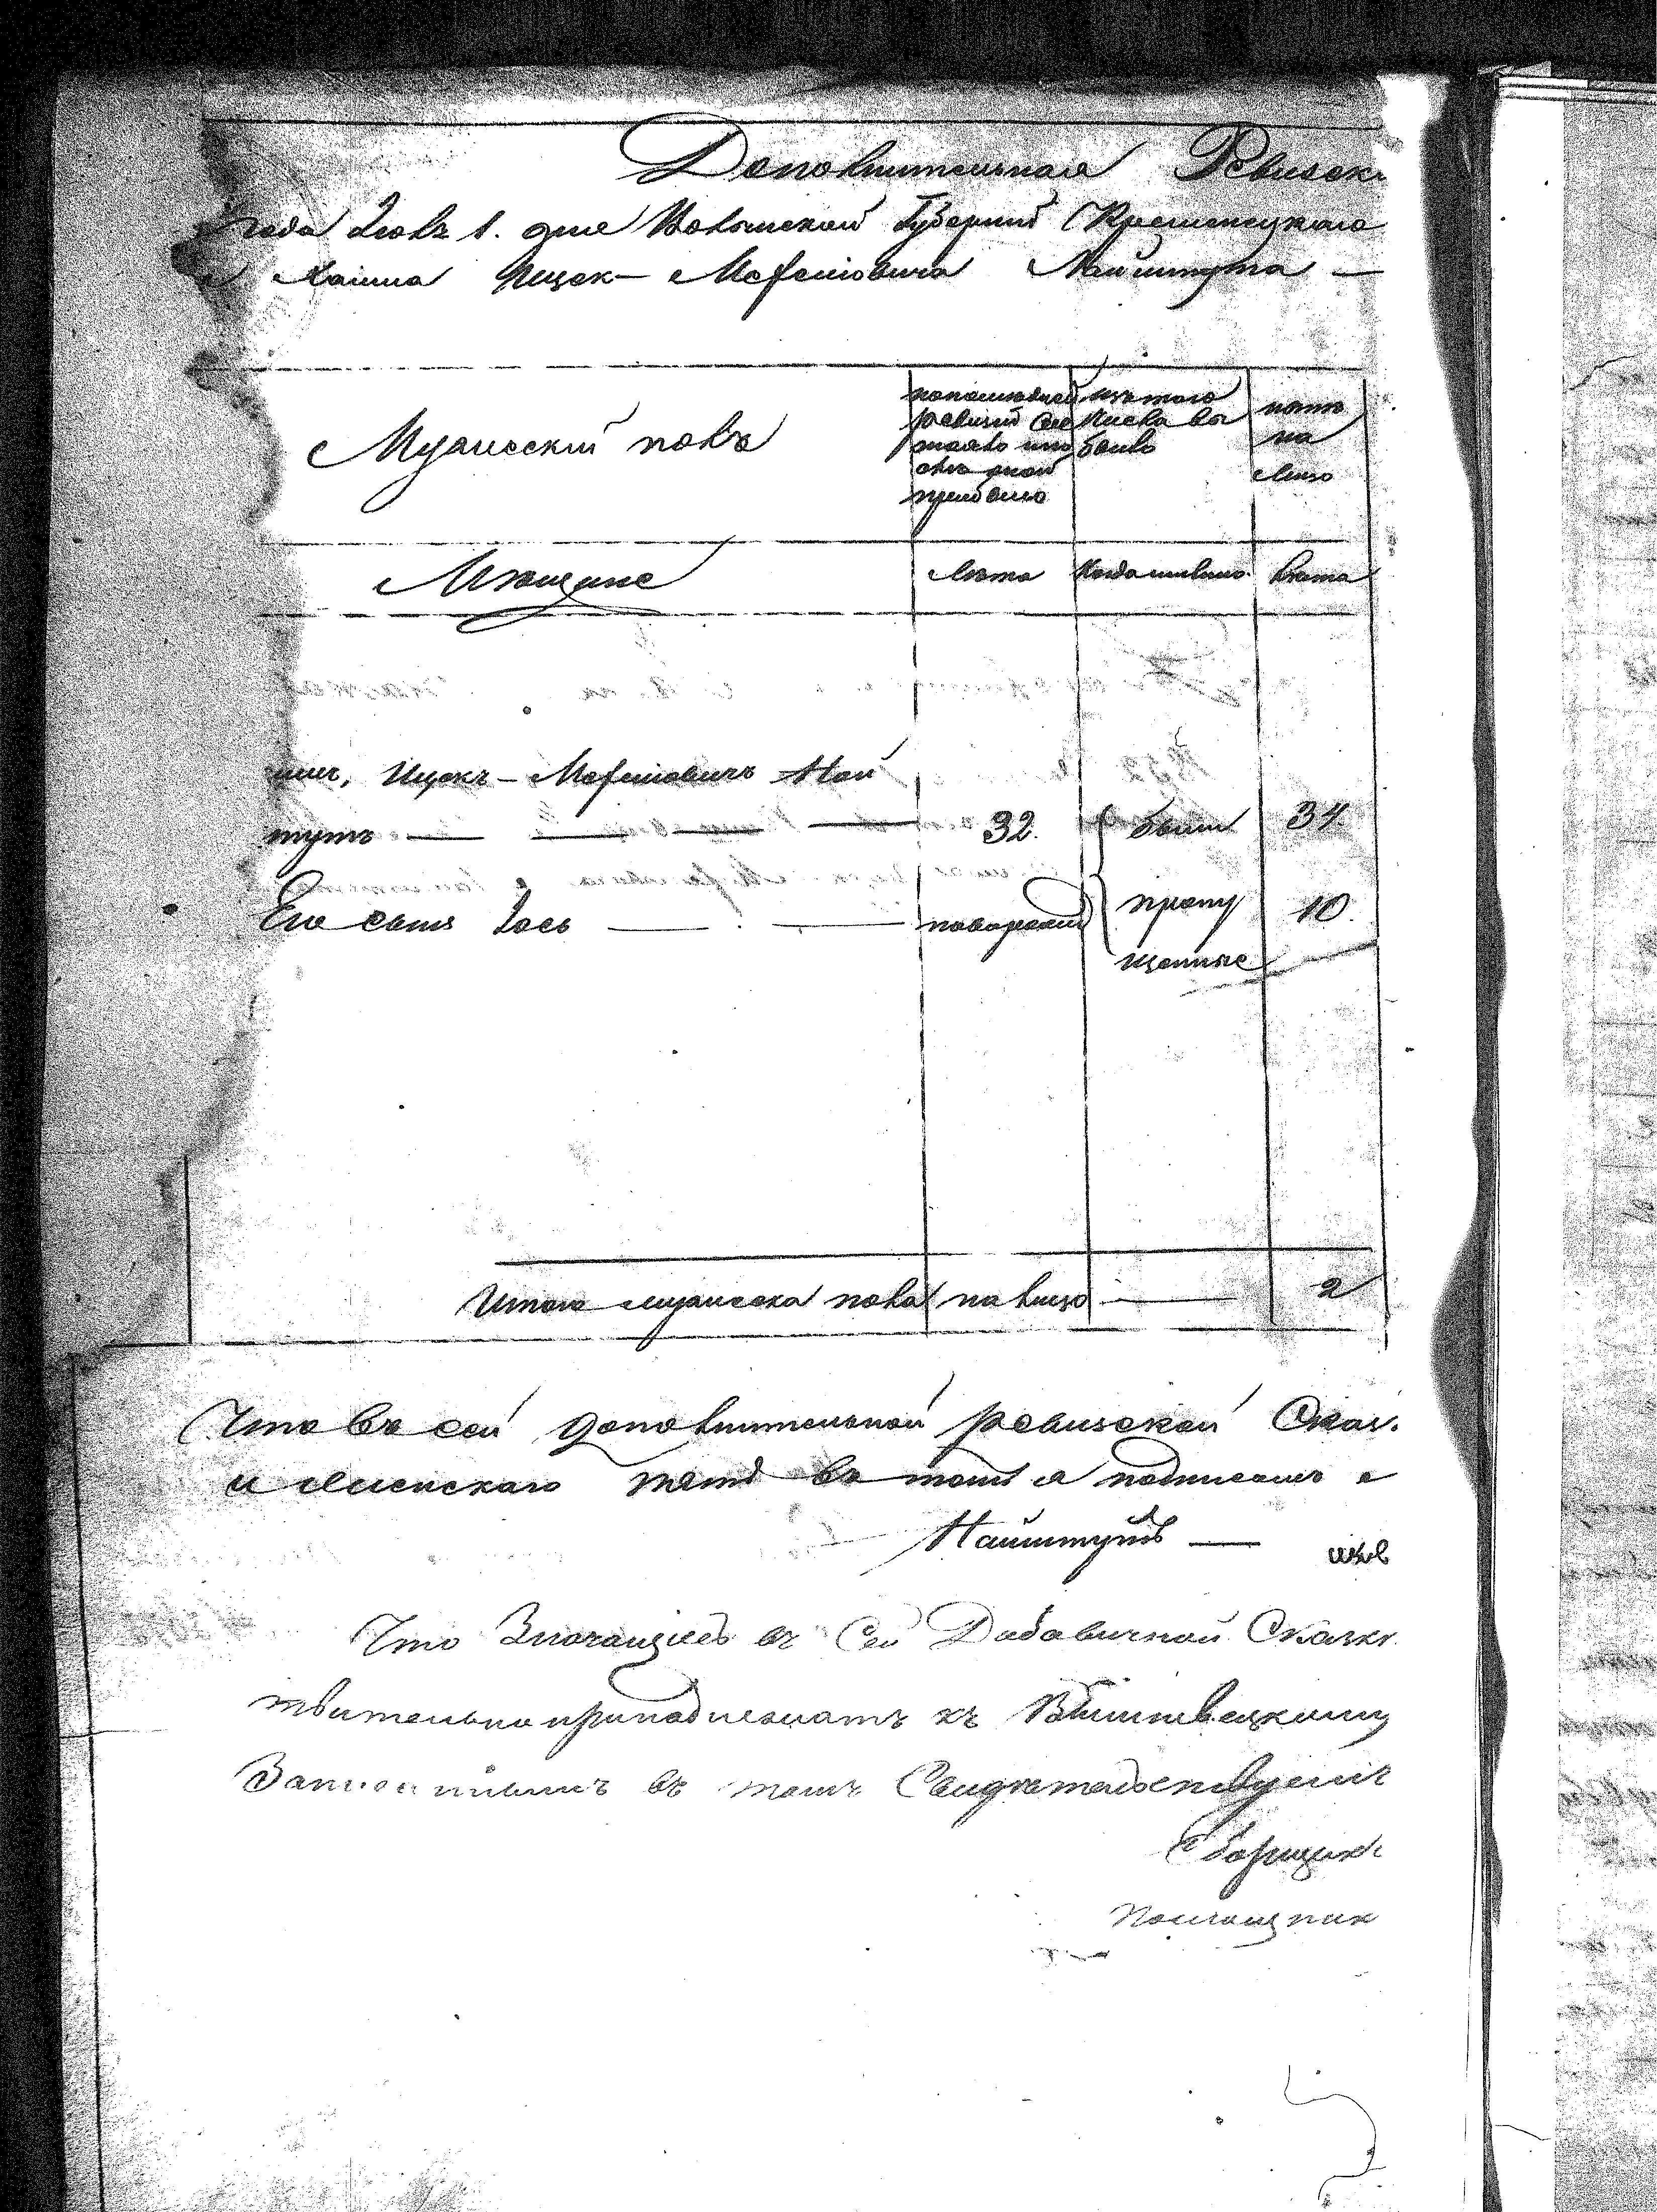 Дополнительная Ревизск
года Июля 1. дня Волынской Губернии Кременецкаго
Хаима Ицек-Мофшовича Найштута —
Мужеский полъ
по последней ревизии состояло или после оной прибыло
изъ того числа выбыло
ныне на лицо
Мещане
Лета
Когда имянно.
Лета
имъ, Ицекъ-Мофшовичъ Най
тутъ — — — 32. были 34
Его сынъ Іось — — новорожд пропу 10.
щенные
Итого мужеска пола на лицо — 2
Что въ сей дополнительной ревизской Сказ.
и женскаго въ томъ и подписомъ
Найштутъ —
Что Значащіесь въ Сей Добавичной Сказк
твительно принадлежатъ къ Вишневецкому
въ томъ Свидетельствуемъ
Сборщикъ
Помощник